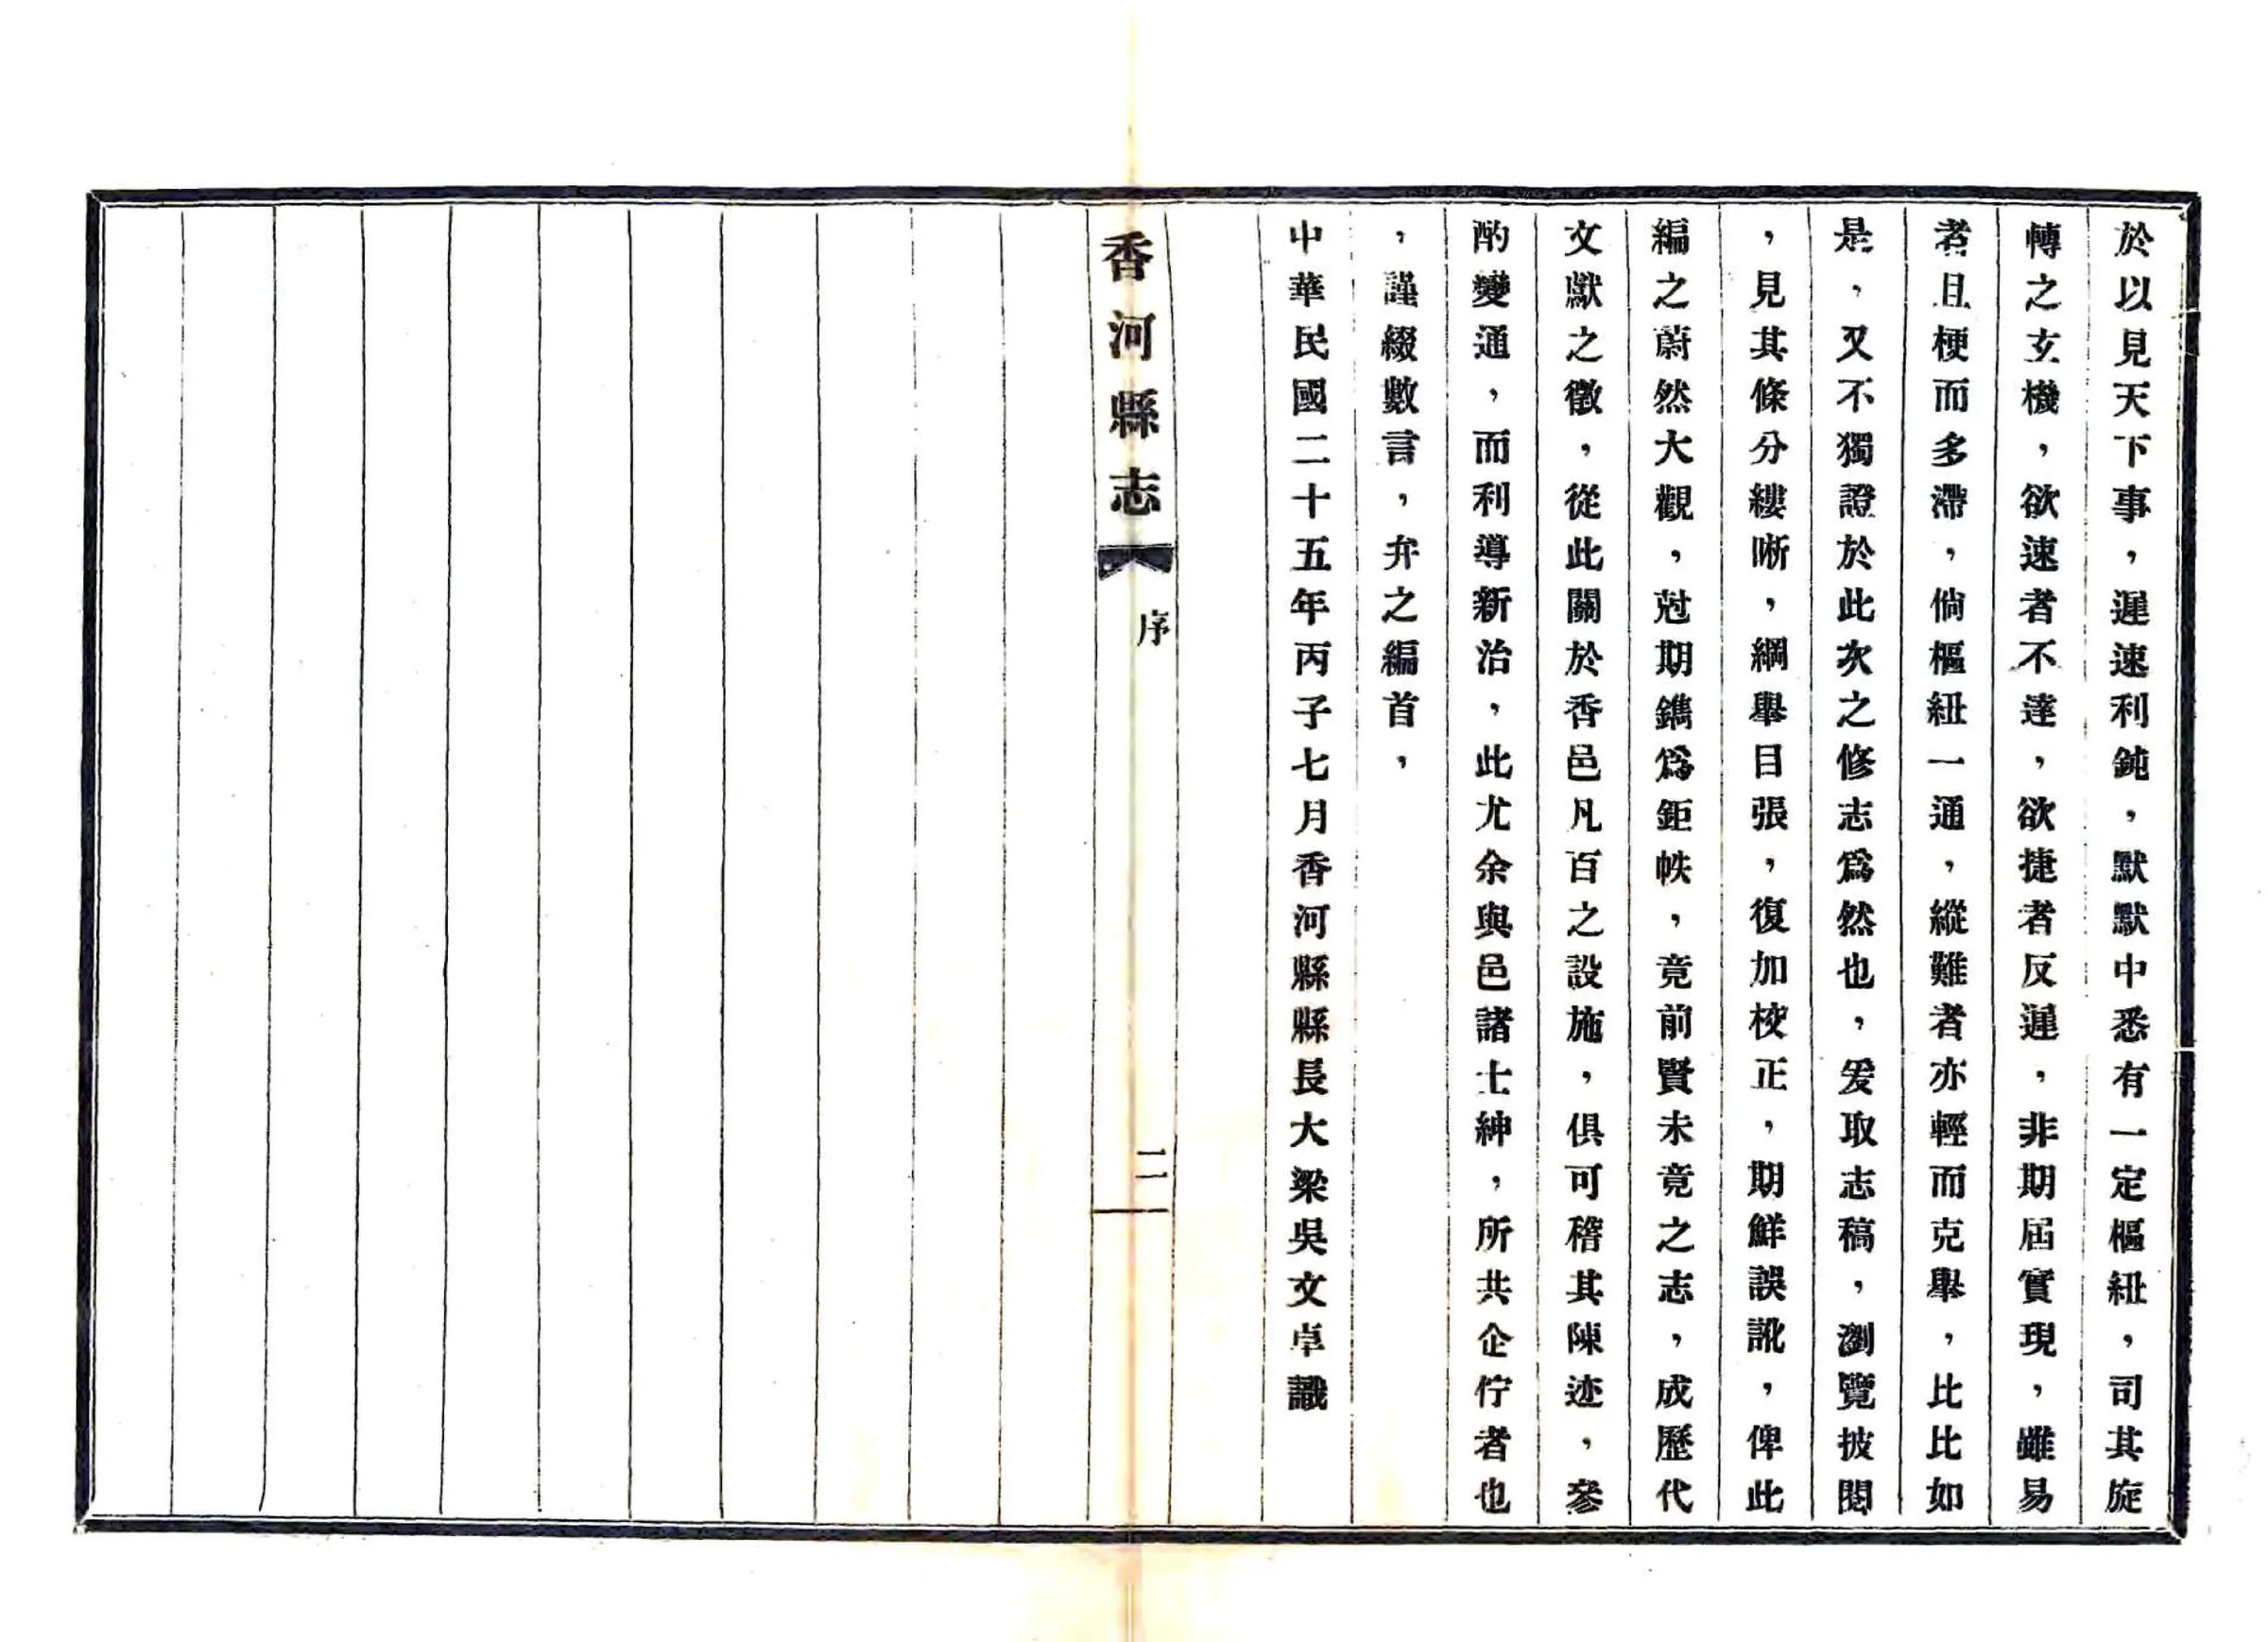 於以見天下事，遲速利鈍，默默中悉有一定樞紐，司其旋
轉之玄機，欲速者不達，欲捷者反遲，非期屆實現，雖易
者且梗而多滯，倘樞紐一通，縱難者亦輕而克舉，比比如
是，又不獨證於此次之修志爲然也，爰取志稿，瀏覽披閱
，見其條分縷晰，綱舉目張，復加校正，期鮮誤訛，俾此
編之蔚然大觀，尅期鐫爲鉅帙，竟前賢未竟之志，成歷代
文獻之徵，從此關於香邑凡百之設施，俱可稽其陳迹，參
酌變通，而利導新治，此尤余與邑諸士紳，所共企佇者也
，謹綴數言，弁之編首，
中華民國二十五年丙子七月香河縣縣長大梁吳文卓識
香河縣志
序
二